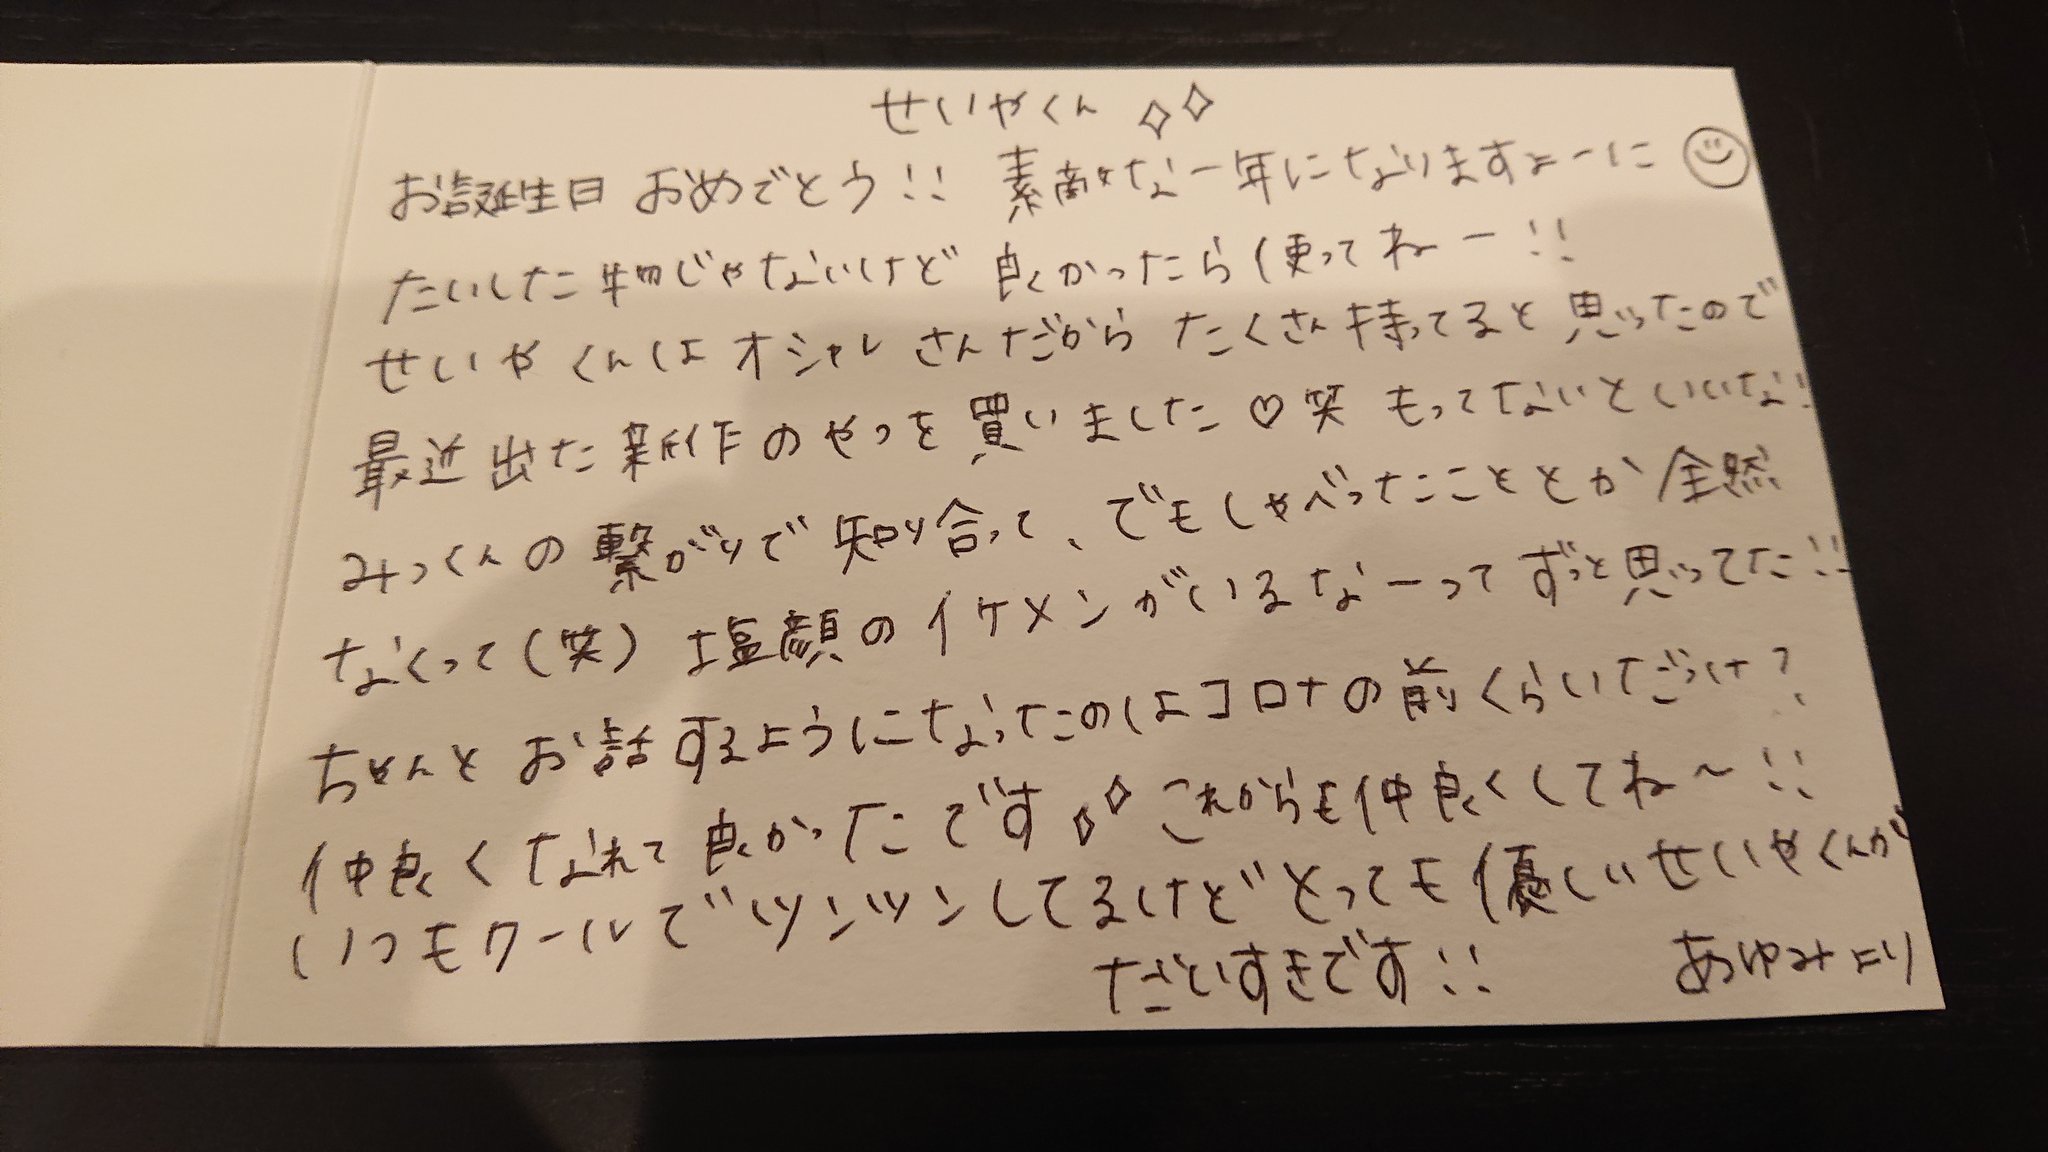 せいやくん
お誕生日 おめでとう!! 素敵な一年になりますよーに
たいした物じゃないけど 良かったら使ってねー!!
せいやくんは オシャレさんだから たくさん持ってると思ったので
最近出た新作のやつを買いました♡笑 もってないといいな!
みっくんの繋がりで知り合って、でもしゃべったこととか全然
なくって(笑) 塩顔のイケメンがいるなーってずっと思ってた!!
ちゃんとお話するようになったのはコロナの前くらいだっけ?
仲良くなれて良かったです これからも仲良くしてね〜!!
いつもクールでツンツンしてるけどとっても優しいせいやくんが
だいすきです!! あゆみより